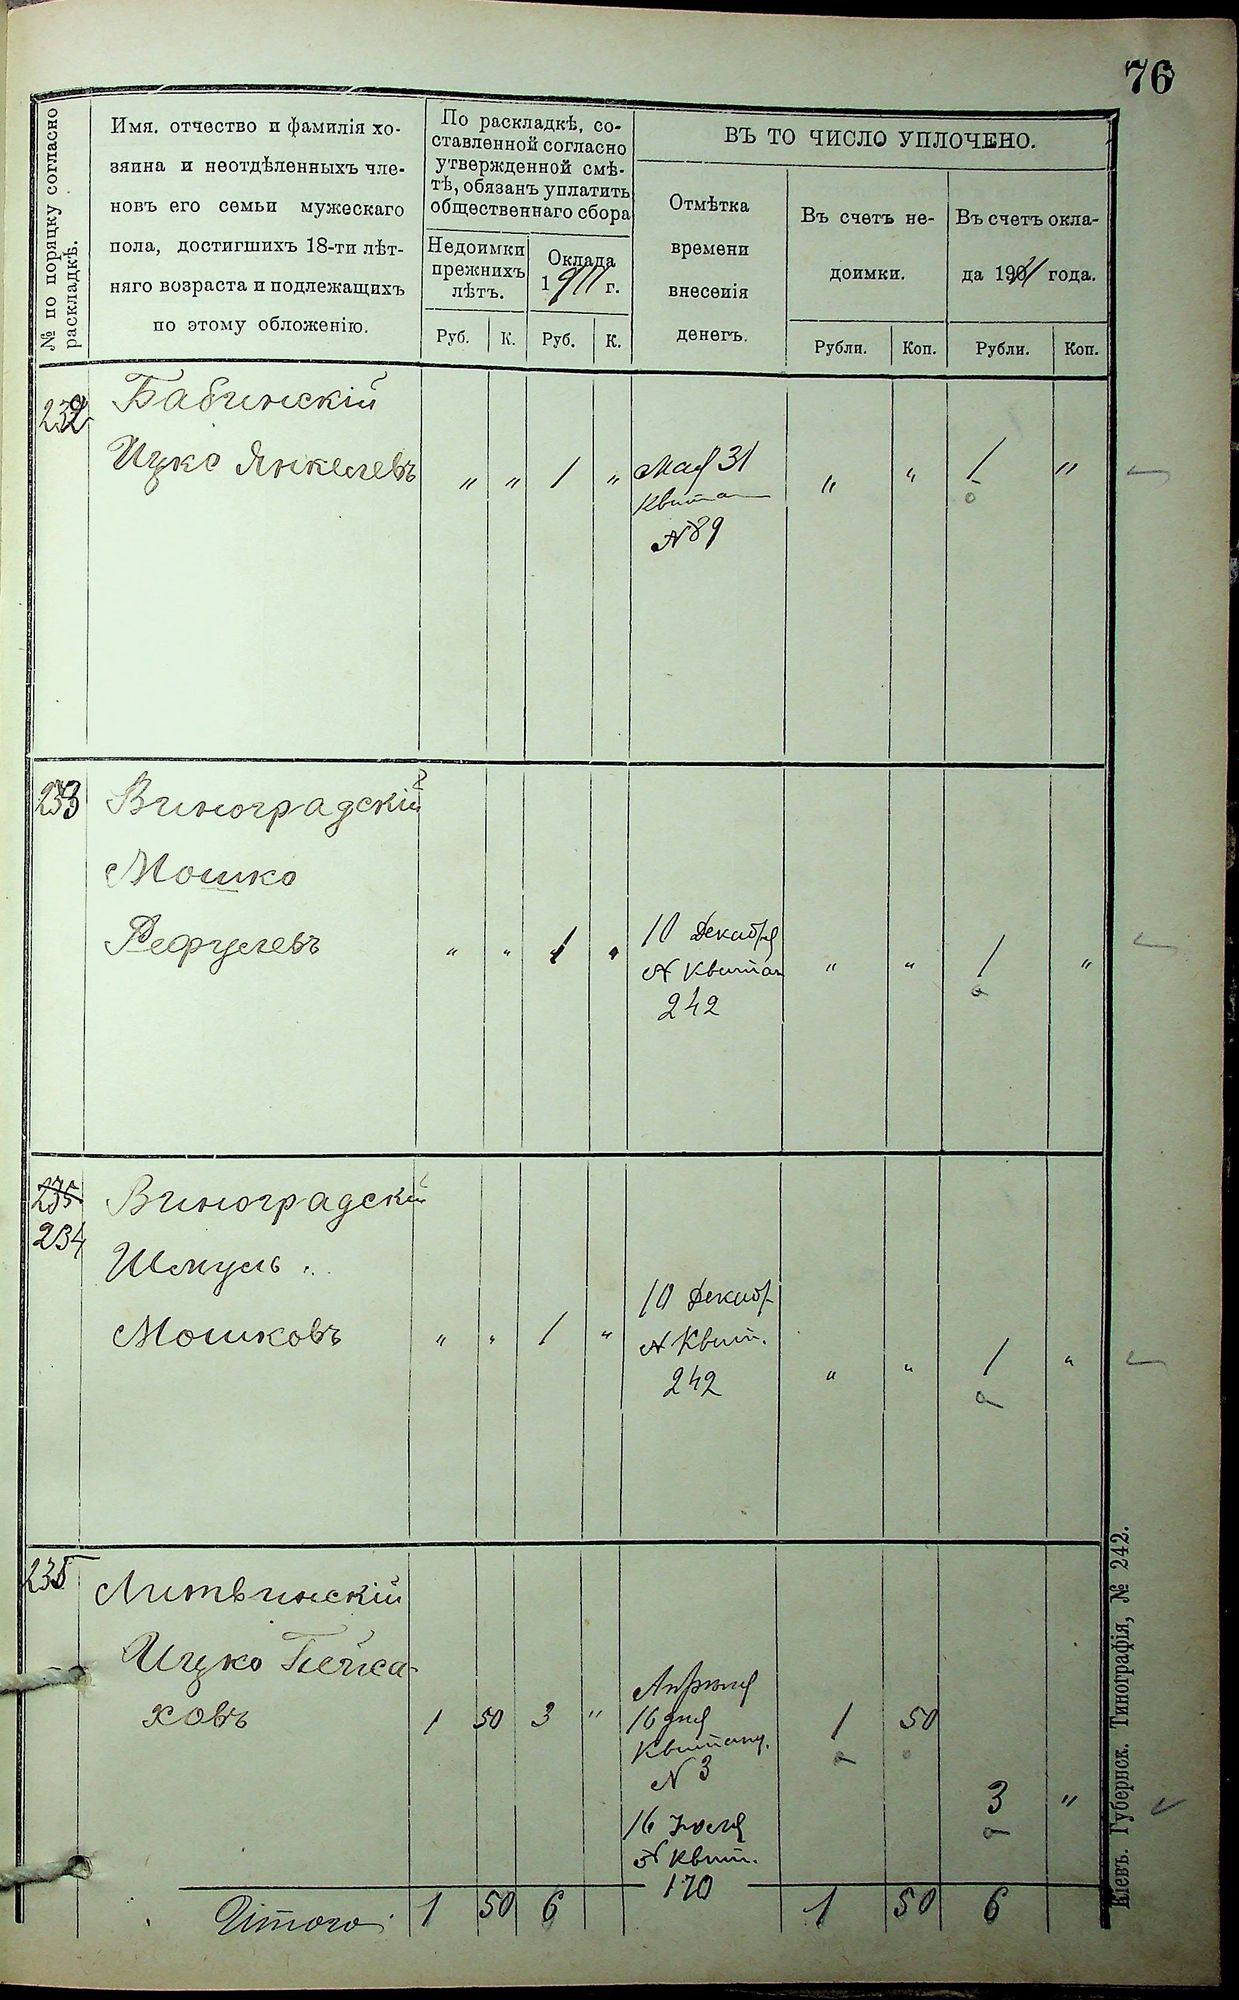 76
№ по порядку согласно
раскладкѣ.
Имя, отчество и фамилія хо-
зяина и неотдѣленныхъ чле-
новъ его семьи мужескаго
пола, достигшихъ 18-ти лѣт-
няго возраста и подлежащихъ
по этому обложенію.
По раскладкѣ, со-
ставленной согласно
утвержденной смѣ-
тѣ, обязанъ уплатить
общественнаго сбора
Недоимки
прежнихъ
лѣтъ.
Оклада
1911 г.
Руб. К. Руб. К.
ВЪ ТО ЧИСЛО УПЛОЧЕНО.
Отмѣтка
времени
внесенія
денегъ.
Въ счетъ не-
доимки.
Въ счетъ окла-
да 1911 года.
Рубли. Коп. Рубли. Коп.
232 Бабинскій
Ицко Янкелевъ " " 1 " Мая 31 " " 1 "
Квитан
№ 89
233 Виноградскій
Мошко
Рефулевъ " " 1 " 10 Декабря " " 1 "
№ Квитан
242
235 Виноградскій
234
Шмуль
Мошковъ " " 1 " 10 Декаб. " " 1 "
№ Квит.
242
235 Литвинскій
Ицко Пейса-
ховъ 1 50 3 " Апрѣля 1 50
16 дня
Квитанц.
№ 3
3 "
16 Іюля
№ Квит.
170
Итого 1 50 6 1 50 6
Кіевъ. Губернск. Типографія, № 242.